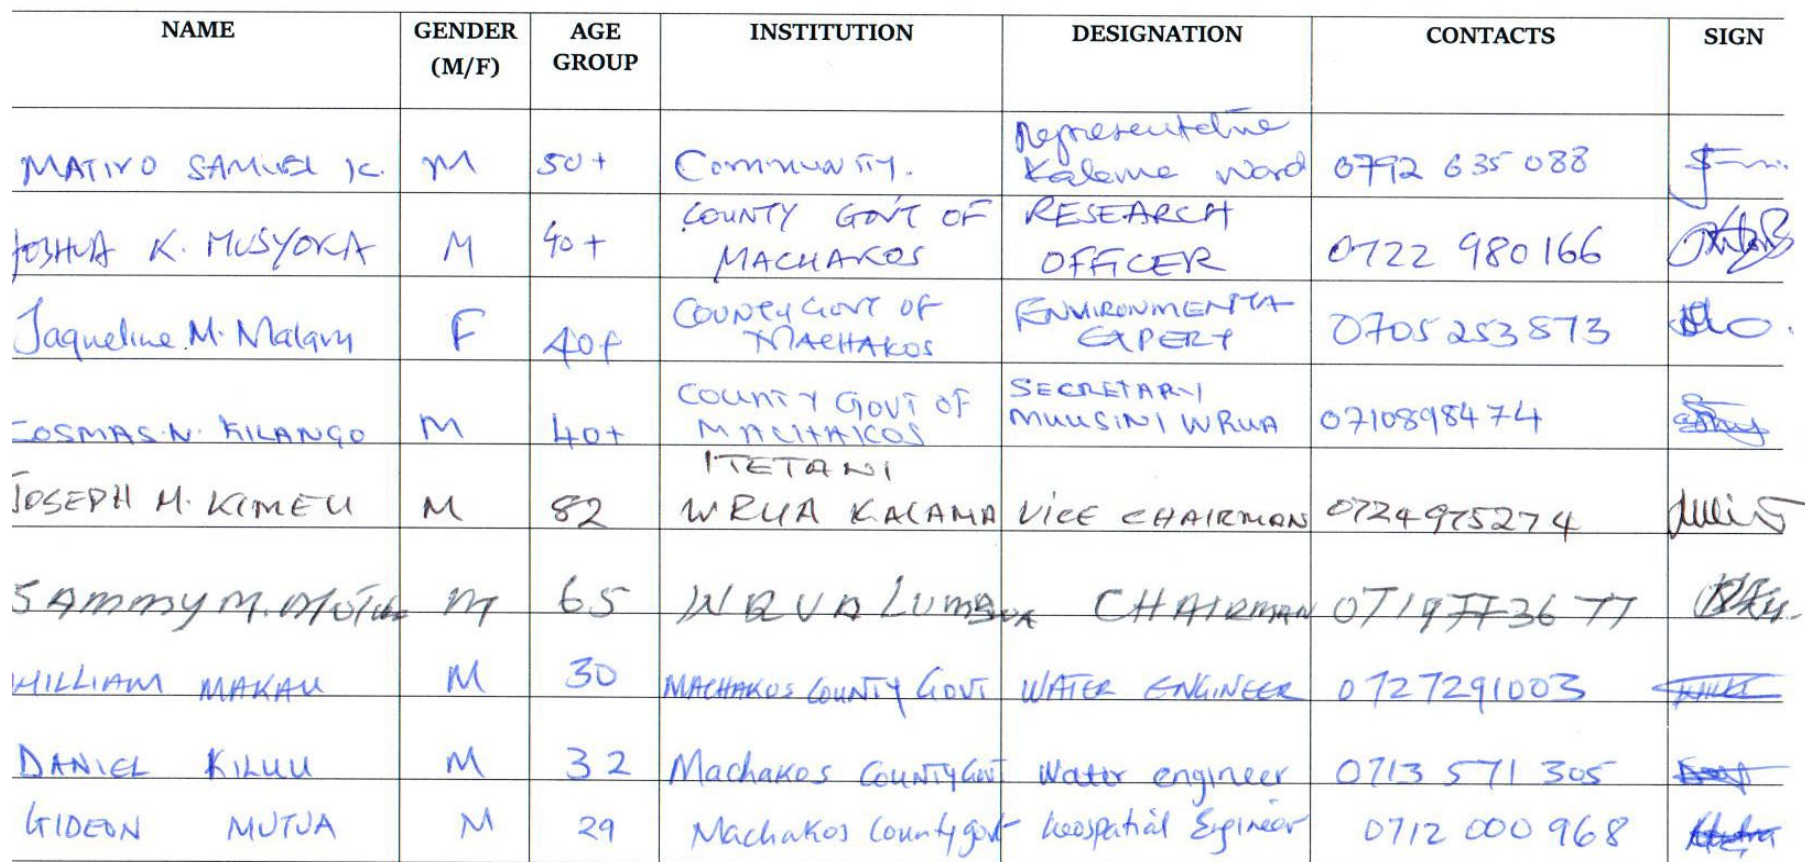 NAME GENDER (M/F) AGE GROUP INSTITUTION DESIGNATION CONTACTS SIGN
MATIVO SAMUEL K. M 50+ Community. Representative Kalama Ward 0792 635 088
JOSHUA K. MUSYOKA M 40+ COUNTY GOV'T OF MACHAKOS RESEARCH OFFICER 0722 980166
Jaqueline M. F 40+ COUNTY GOVT OF MACHAKOS ENVIRONMENTA EXPERT 0705 253 873
COSMAS N. KILANGO M 40+ COUNTY GOVT OF MACHAKOS SECRETARY MUUSINI WRUA 0710898474
JOSEPH M. KIMEU M 82 ITETANI WRUA KALAMA VICE CHAIRMAN 0724975274
SAMMY M. M 65 WRUA CHAIRMAN 0719773677
WILLIAM MAKAU M 30 MACHAKOS COUNTY GOVT WATER ENGINEER 0727291003
DANIEL KILUU M 32 Machakos COUNTY Govt Water engineer 0713 571 305
GIDEON MUTUA M 29 Machakos County govt Geospatial Engineer 0712 000 968